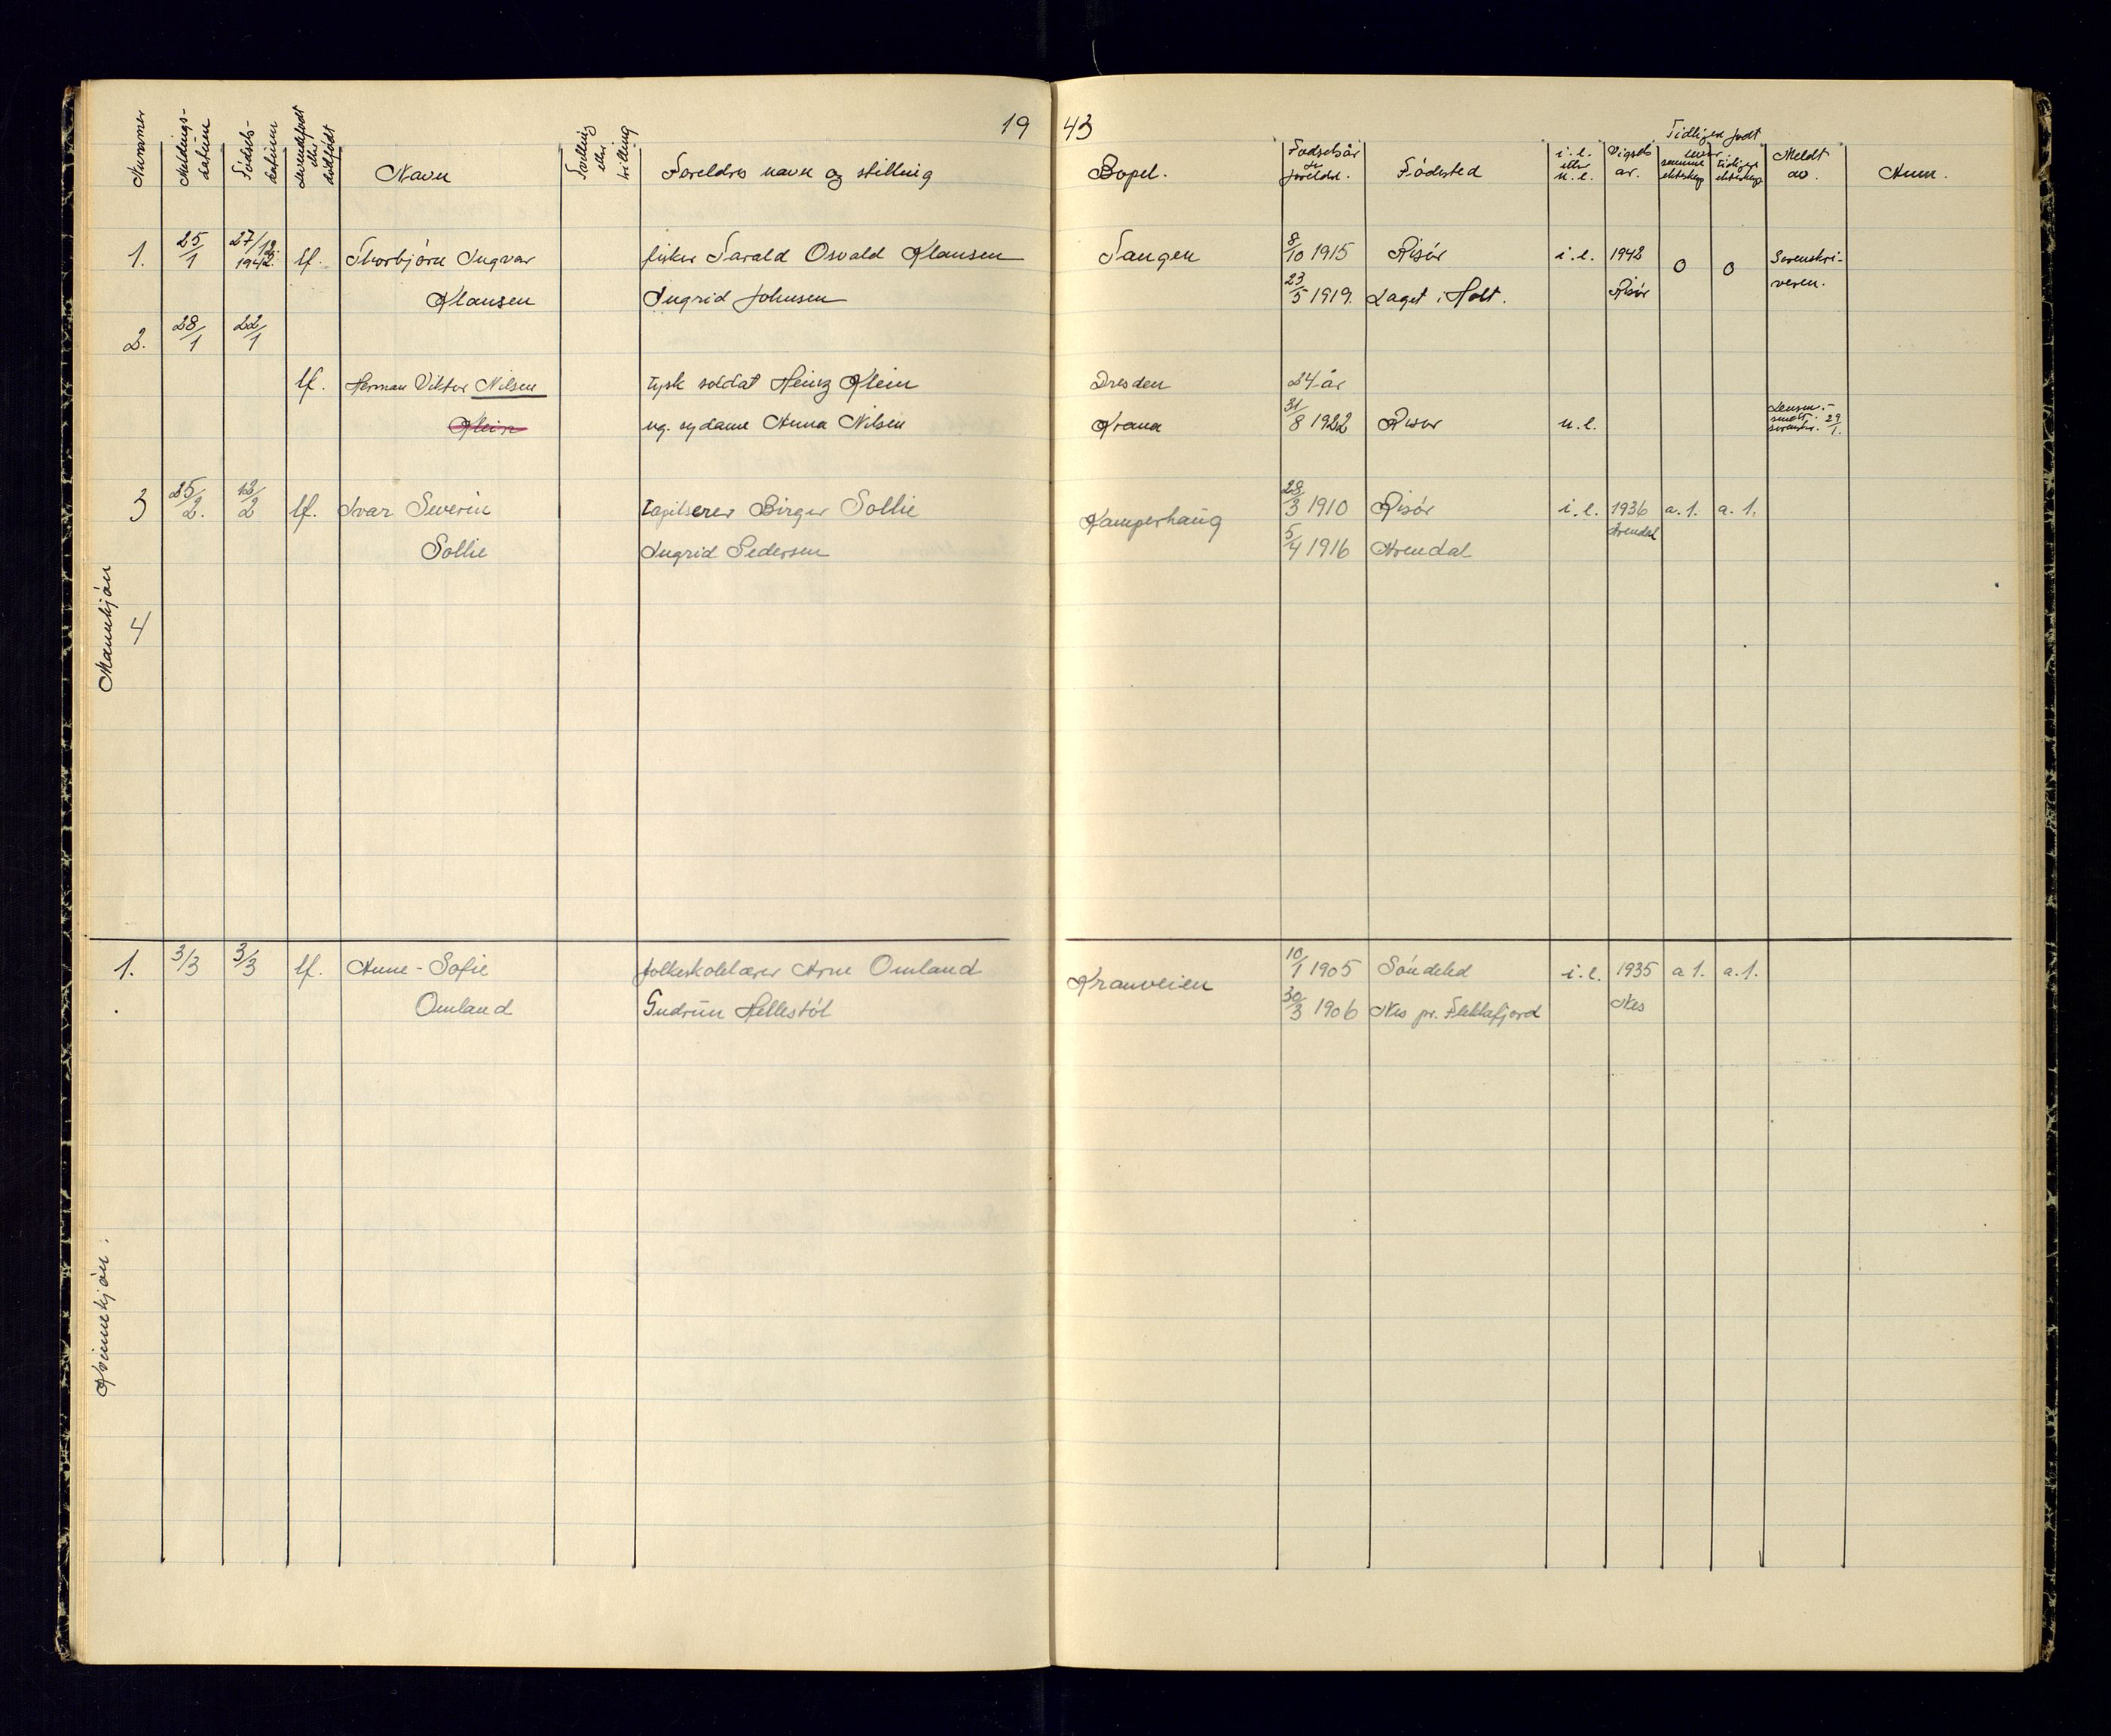 19 43
Nummer Meldings- datum Fødsels- datum Levendefødt eller dødfødt Navn Tvilling eller trilling Foreldres navn og stilling Bopel. Fødselsår for foreldre. Fødested i.e. eller u.e. Vigsels år. Tidligere født levr. samme ekteskap tidligere ekteskap Meldt av. Anm.
Mannkjøn
1. 25/1 27/12. 1942. lf. Thorbjørn Ingvar fisker Tarald Osvald Klausen Tangen 8/10 1915 Risør i.e. 1942 0 0 Sorenskri-
Klausen Ingrid Johnsen 23/5 1919. Laget i Holt. Risør veren.
2. 28/1 22/1
lf. Herman Viktor Nilsen tysk soldat Heinz Klein Dresden 24 år
Klein ug. sydame Anna Nilsen Krana 31/8 1922 Risør u.e. 29/1.
3 25/2. 12/2 lf. Ivar Severin tapetserer Birger Sollie Kamperhaug 28/3 1910 Risør i.e. 1936 a.1. a.1.
Sollie Ingrid Pedersen 5/4 1916 Arendal Arendal
4
Kvinnekjøn.
1. 3/3 3/3 lf. Anne-Sofie folkeskolelærer Arne Omland Kranveien 10/1 1905 Søndeled i.e. 1935 a 1. a.1.
Omland Gudrun Hellestøl 30/3 1906 Nes pr. Flekkefjord Nes